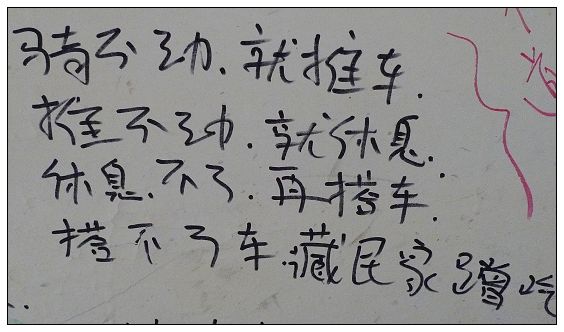 骑不动.就推车.
推不动.就休息.
休息.不了.再搭车.
搭不了车.藏民家蹭吃